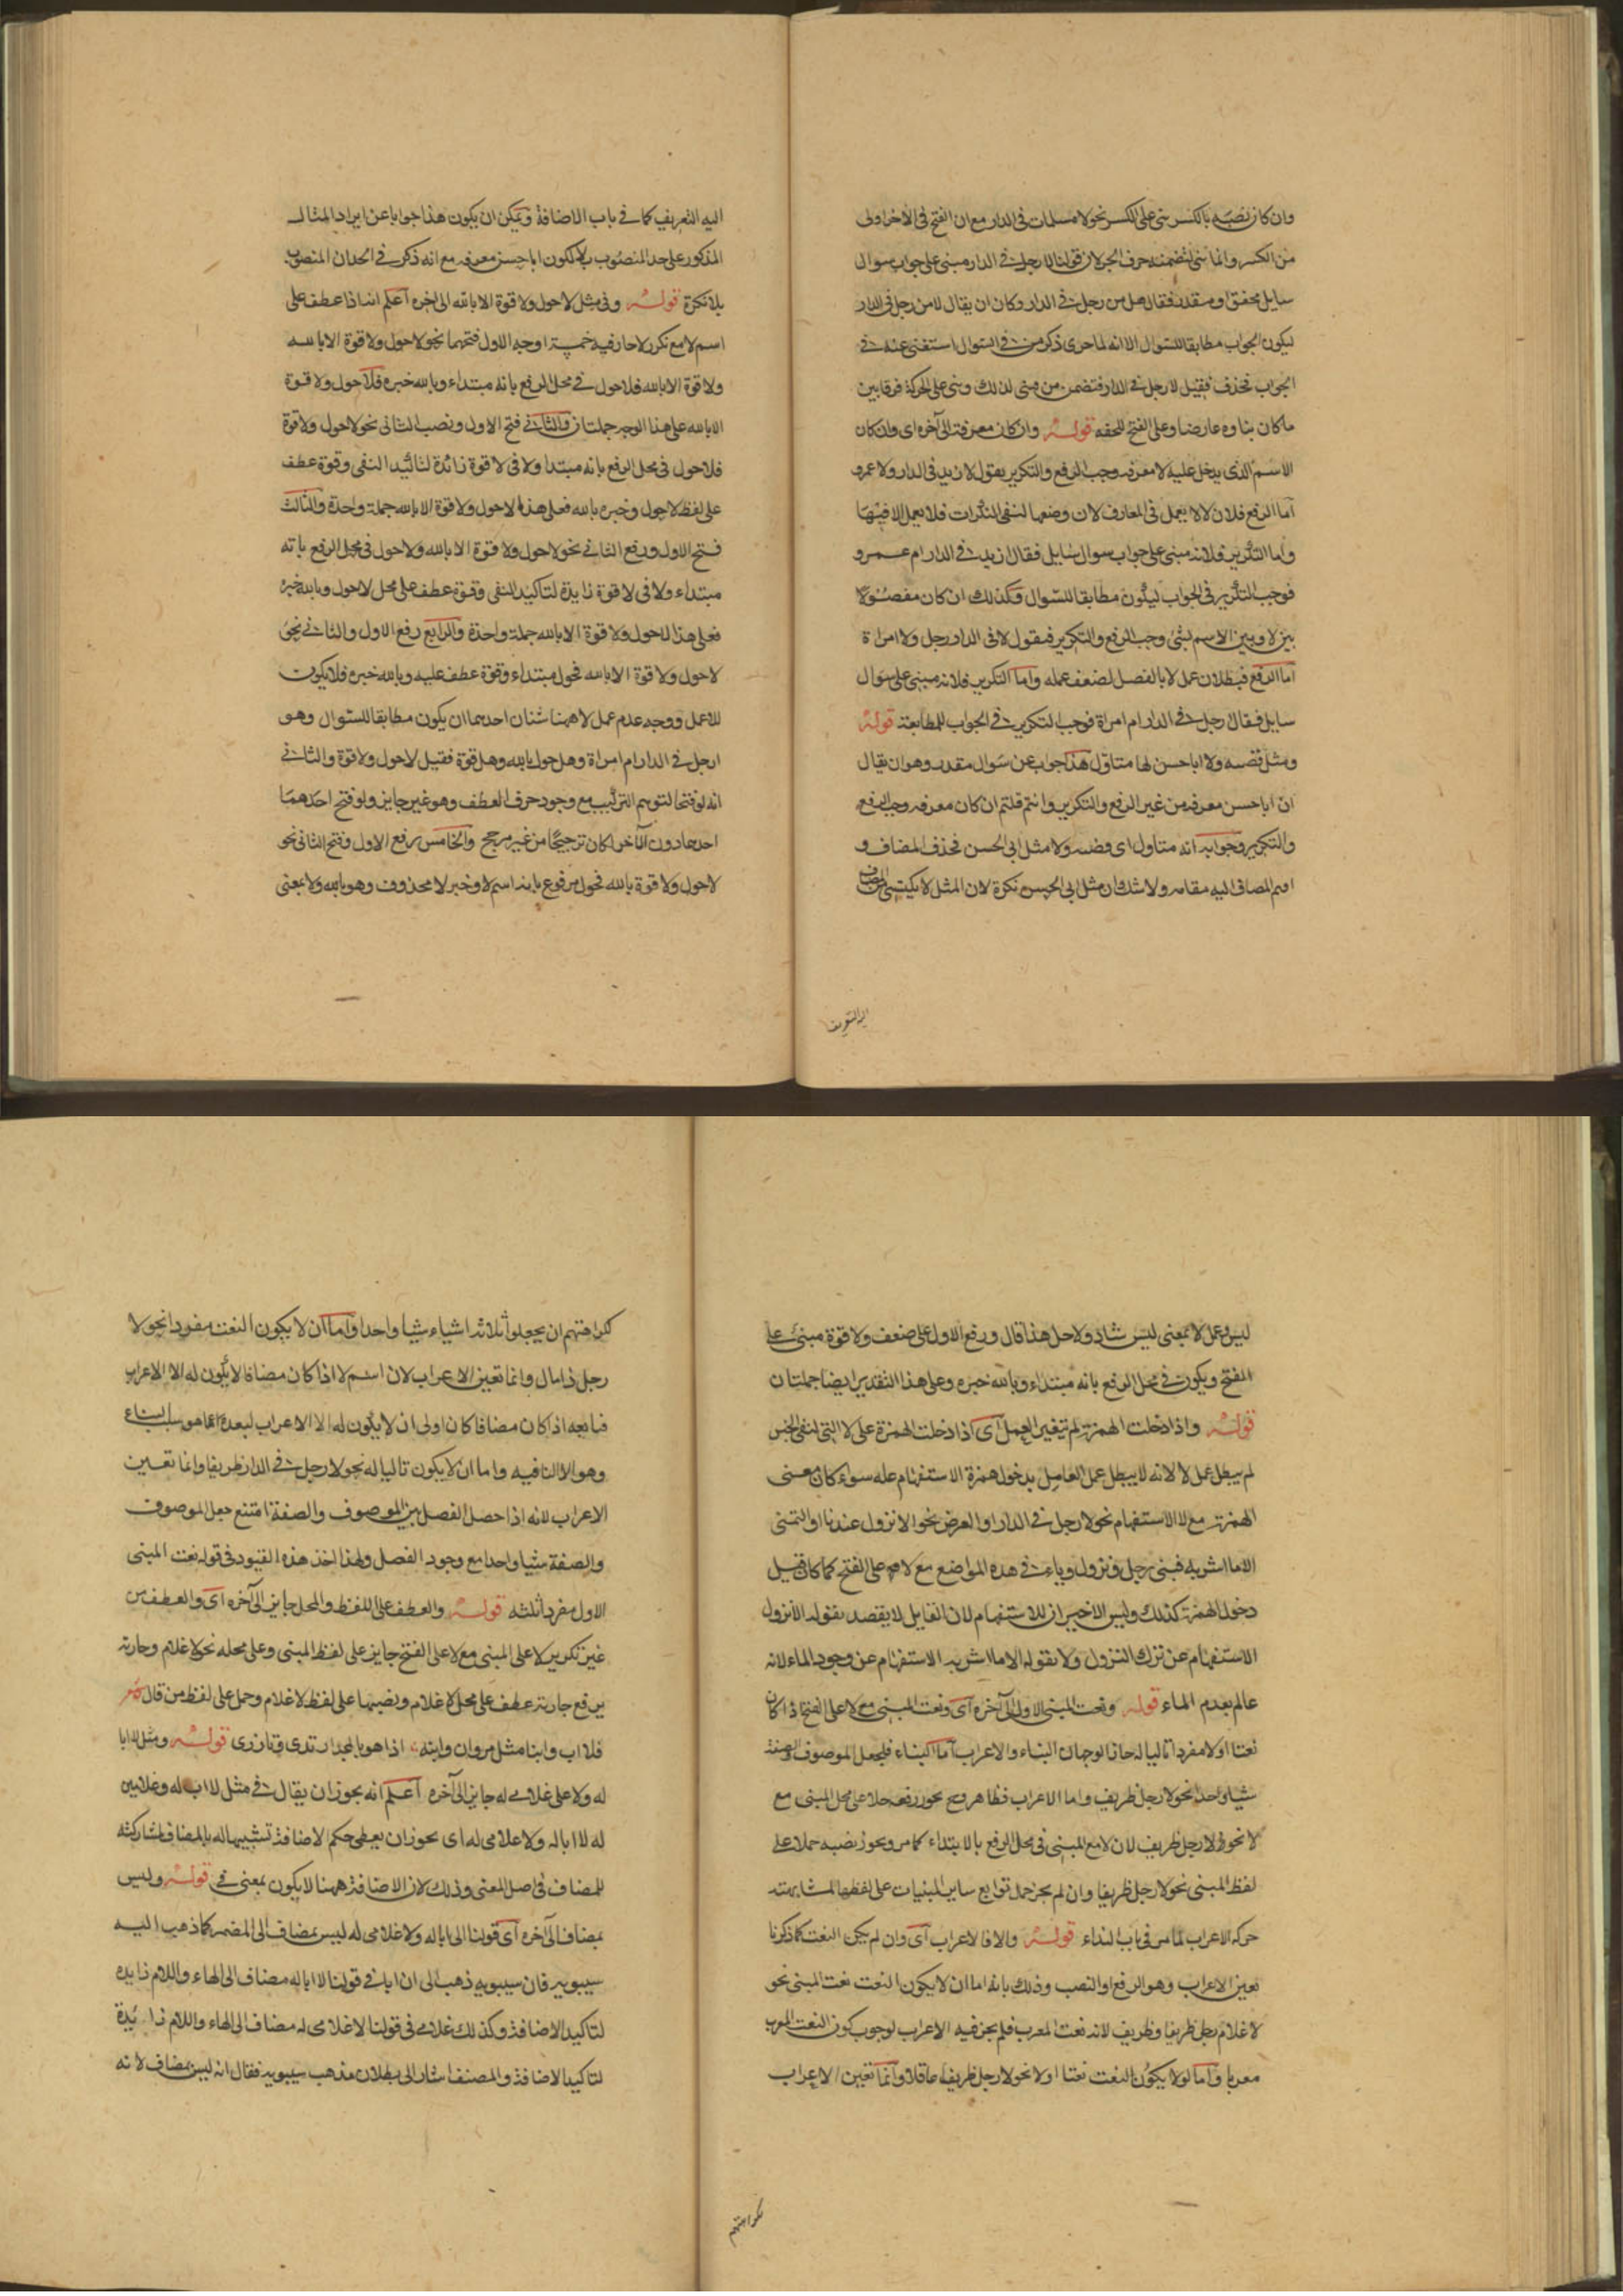 وان كان نصبه بالكسر بنى على الكسر نحو لا مسلمات فى الدار مع ان الفتح فى الآخر اولى
من الكسر وانما بنى لتضمنه حرف الجر لان قولنا لا رجل فى الدار مبنى على جواب سوال
سايل محقق او مقدر فقال هل من رجل فى الدار وكان ان يقال لا من رجل فى الدار
ليكون الجواب مطابقا للسوال الا انه لما جرى ذكر من فى السوال استغنى عنه فى
الجواب فحذف فقيل لا رجل فى الدار فتضمن من فبنى لذلك وبنى على الحركة فرقا بين
ما كان بناوه عارضا وعلى الفتح للخفه قوله وان كان معرفة الى آخره اى وان كان
الاسم الذى يدخل عليه لا معرفه وجب الرفع والتكرير يقول لا زيد فى الدار ولا عمرو
أما الرفع فلان لا لا يعمل فى المعارف لان وضعها لنفى النكرات فلا يعمل الا فيها
واما التكرير فلانه مبنى على جواب سوال سايل فقال ازيد فى الدار ام عمرو
فوجب التكرير فى الجواب ليكون مطابقا للسوال وكذلك ان كان مفصولا
بين لا وبين الاسم لشئ وجب الرفع والتكرير فيقول لا فى الدار رجل ولا امراة
اما الرفع فبطلان عمل لا بالفصل لضعف عمله واما التكرير فلانه مبنى على سوال
سايل فقال ارجل فى الدار ام امراة فوجب التكرير فى الجواب للمطابقة قوله
ومثل قضيه ولا ابا حسن لها متاول هذا جواب عن سوال مقدر وهو ان يقال
ان ابا حسن معرفه من غير الرفع والتكرير وانتم قلتم ان كان معرفه وجب الرفع
والتكرير وجوابه انه متاول اى قضيه ولا مثل ابى الحسن فحذف المضاف و
اقيم المضاف اليه مقامه ولا شك ان مثل ابى الحسن نكرة لان المثل لا يكتسى المضاف
اليه التعريف
اليه التعريف كما فى باب الاضافة ويمكن ان يكون هذا جوابا عن ايراد المثال
المذكور على حد المنصوب بلا لكون ابا حسن معرفه مع انه ذكر فى الحد ان المنصوب
بلا نكرة قوله وفى مثل لا حول ولا قوة الا بالله الى آخره اعلم انه اذا عطف على
اسم لا مع تكرر لا جاز فيه خمسة اوجه الاول فتحهما نحو لا حول ولا قوة الا بالله
ولا قوة الا بالله فلا حول فى محل الرفع بانه مبتداء وبالله خبره فلا حول ولا قوة
الا بالله على هذا الوجه جملتان والثانى فتح الاول ونصب الثانى نحو لا حول ولا قوة
فلا حول فى محل الرفع بانه مبتدا ولا فى لا قوة زائدة لتاكيد النفى وقوة عطف
على لفظ لا حول وخبره بالله فعلى هذا لا حول ولا قوة الا بالله جملة واحدة والثالث
فتح الاول ورفع الثانى نحو لا حول ولا قوة الا بالله ولا حول فى محل الرفع بانه
مبتداء ولا فى لا قوة زايدة لتاكيد النفى وقوة عطف على محل لا حول وبالله خبره
فعلى هذا لا حول ولا قوة الا بالله جملة واحدة والرابع رفع الاول والثانى نحو
لا حول ولا قوة الا بالله فحول مبتداء وقوة عطف عليه وبالله خبره فلا يكون
للا عمل ووجه عدم عمل لا ههنا شئان احدهما ان يكون مطابقا للسوال وهو
ارجل فى الدار ام امراة وهل حول بالله وهل قوة فقيل لا حول ولا قوة والثانى
انه لو فتحا لتوهم التركيب مع وجود حرف العطف وهو غير جايز ولو فتح احدهما
احدهما دون الآخر لكان ترجيحا من غير مرجح والخامس رفع الاول وفتح الثانى نحو
لا حول ولا قوة بالله فحول مرفوع بانه اسم لا وخبر لا محذوف وهو بالله ولا بمعنى
ليس وعمل لا بمعنى ليس شاذ ولاجل هذا قال ورفع الاول على ضعف ولا قوة مبنى على
الفتح ويكون فى محل الرفع بانه مبتداء وبالله خبره وعلى هذا التقدير ايضا جملتان
قوله واذا دخلت الهمزة لم تغير العمل اى اذا دخلت الهمزة على لا التى لنفى الجنس
لم يبطل عمل لا لانه لا يبطل عمل العامل بدخول همزة الاستفهام عليه سواء كان معنى
الهمزة مع لا الاستفهام نحو لا رجل فى الدار او العرض نحو الا نزول عندنا او التمنى
الا ماء اشربه فبنى رجل ونزول وماء فى هذه المواضع مع لا على الفتح كما كان قبل
دخول الهمزة كذلك وليس الاخيران للاستفهام لان القايل لا يقصد بقوله الا نزول
الاستفهام عن ترك النزول ولا بقوله الا ماء اشربه الاستفهام عن وجود الماء لانه
عالم بعدم الماء قوله ونعت المبنى الاول الى آخره اى ونعت المبنى مع لا على الفتح اذا كان
نعتا اولا مفردا تاليا له جاز الوجهان البناء والاعراب اما البناء فليجعل الموصوف والصفة
شيئا واحدا نحو لا رجل ظريف واما الاعراب فظاهر وح يجوز رفعه حملا على محل المبنى مع
لا نحو لا رجل ظريف لان لا مع المبنى فى محل الرفع بالابتداء كما مر ويجوز نصبه حملا على
لفظ المبنى نحو لا رجل ظريفا وان لم يجز حمل توابع ساير المبنيات على لفظها لمشابهته
حركه الاعراب لما مر فى باب النداء قوله والا فالاعراب اى وان لم يكن النعت كما ذكرنا
تعين الاعراب وهو الرفع او النصب وذلك بانه اما ان لا يكون النعت نعت المبنى نحو
لا غلام رجل ظريفا وظريف لانه نعت المعرب فلم يجز فيه الا الاعراب لوجوب كون النعت المعرب
معربا واما لو لا يكون النعت نعتا اولا نحو لا رجل ظريف عاقلا وانما تعين الاعراب
لكراهتهم
لكراهتهم ان يجعلوا ثلاثة اشياء شيئا واحدا واما ان لا يكون النعت مفردا نحو لا
رجل ذا مال وانما تعين الاعراب لان اسم لا اذا كان مضافا لا يكون له الا الاعراب
فتابعه اذا كان مضافا كان اولى ان لا يكون له الا الاعراب لبعده عما هو سبب البناء
وهو لا النافيه واما ان لا يكون تاليا له نحو لا رجل فى الدار ظريفا وانما تعين
الاعراب لانه اذا حصل الفصل بين الموصوف والصفة امتنع جعل الموصوف
والصفة شيئا واحدا مع وجود الفصل ولهذا اخذ هذه القيود فى قوله نعت المبنى
الاول مفردا يليه قوله والعطف على اللفظ والمحل جايز الى آخره اى والعطف من
غير تكرير لا على المبنى مع لا على الفتح جايز على لفظ المبنى وعلى محله نحو لا غلام وجارية
يرفع جارية عطف على محل لا غلام ونصبها على لفظ لا غلام وحمل على لفظ من قال شعر
فلا اب وابنا مثل مروان وابنه اذا هو بالمجد ارتدى وتازرى قوله ومثل لا ابا
له ولا غلامى له جايز الى آخره اعلم انه يجوز ان يقال فى مثل لا اب له وغلامين
له لا ابا له ولا غلامى له اى يجوز ان يعطى حكم الاضافة تشبيها له بالمضاف لمشاركته
للمضاف فى اصل المعنى وذلك لان الاضافة ههنا لا يكون بمعنى فى قوله وليس
بمضاف الى آخره اى قولنا لا ابا له ولا غلامى له ليس بمضاف الى المضمر كما ذهب اليه
سيبويه فان سيبويه ذهب الى ان ابا فى قولنا لا ابا له مضاف الى الهاء واللام زايده
لتاكيد الاضافة وكذلك غلامى فى قولنا لا غلامى له مضاف الى الهاء واللام زايدة
لتاكيد الاضافة والمصنف اشار الى بطلان مذهب سيبويه فقال انه ليس بمضاف لانه